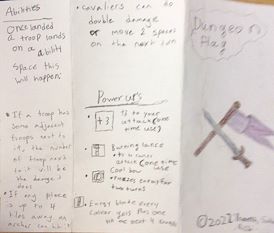 Abilities
Once landed
a troop lands
on a ability
space this
will happen
• If a troop has
some adjacent
troops next to
it, the number
of troop next
to it will be
the damage it
does
• If any place
is up to 4
tiles away, an
archer can hit it
• cavaliers can do
double damage
or move 2 spaces
on the next turn
Power ups
+3
to your
attack (one
time use)
Burning lance
attack (one time
use)
Cool bow
freezes enemy for
two turns
every
Dungeon
Flag
©202